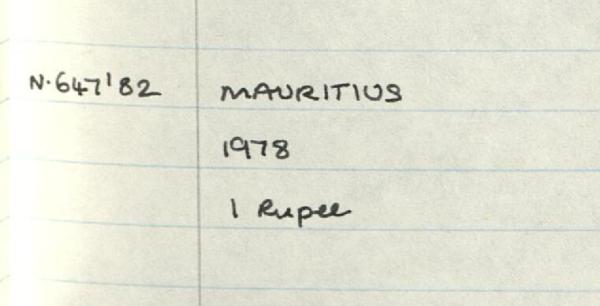 N.647'82 MAURITIUS
1978
1 Rupee